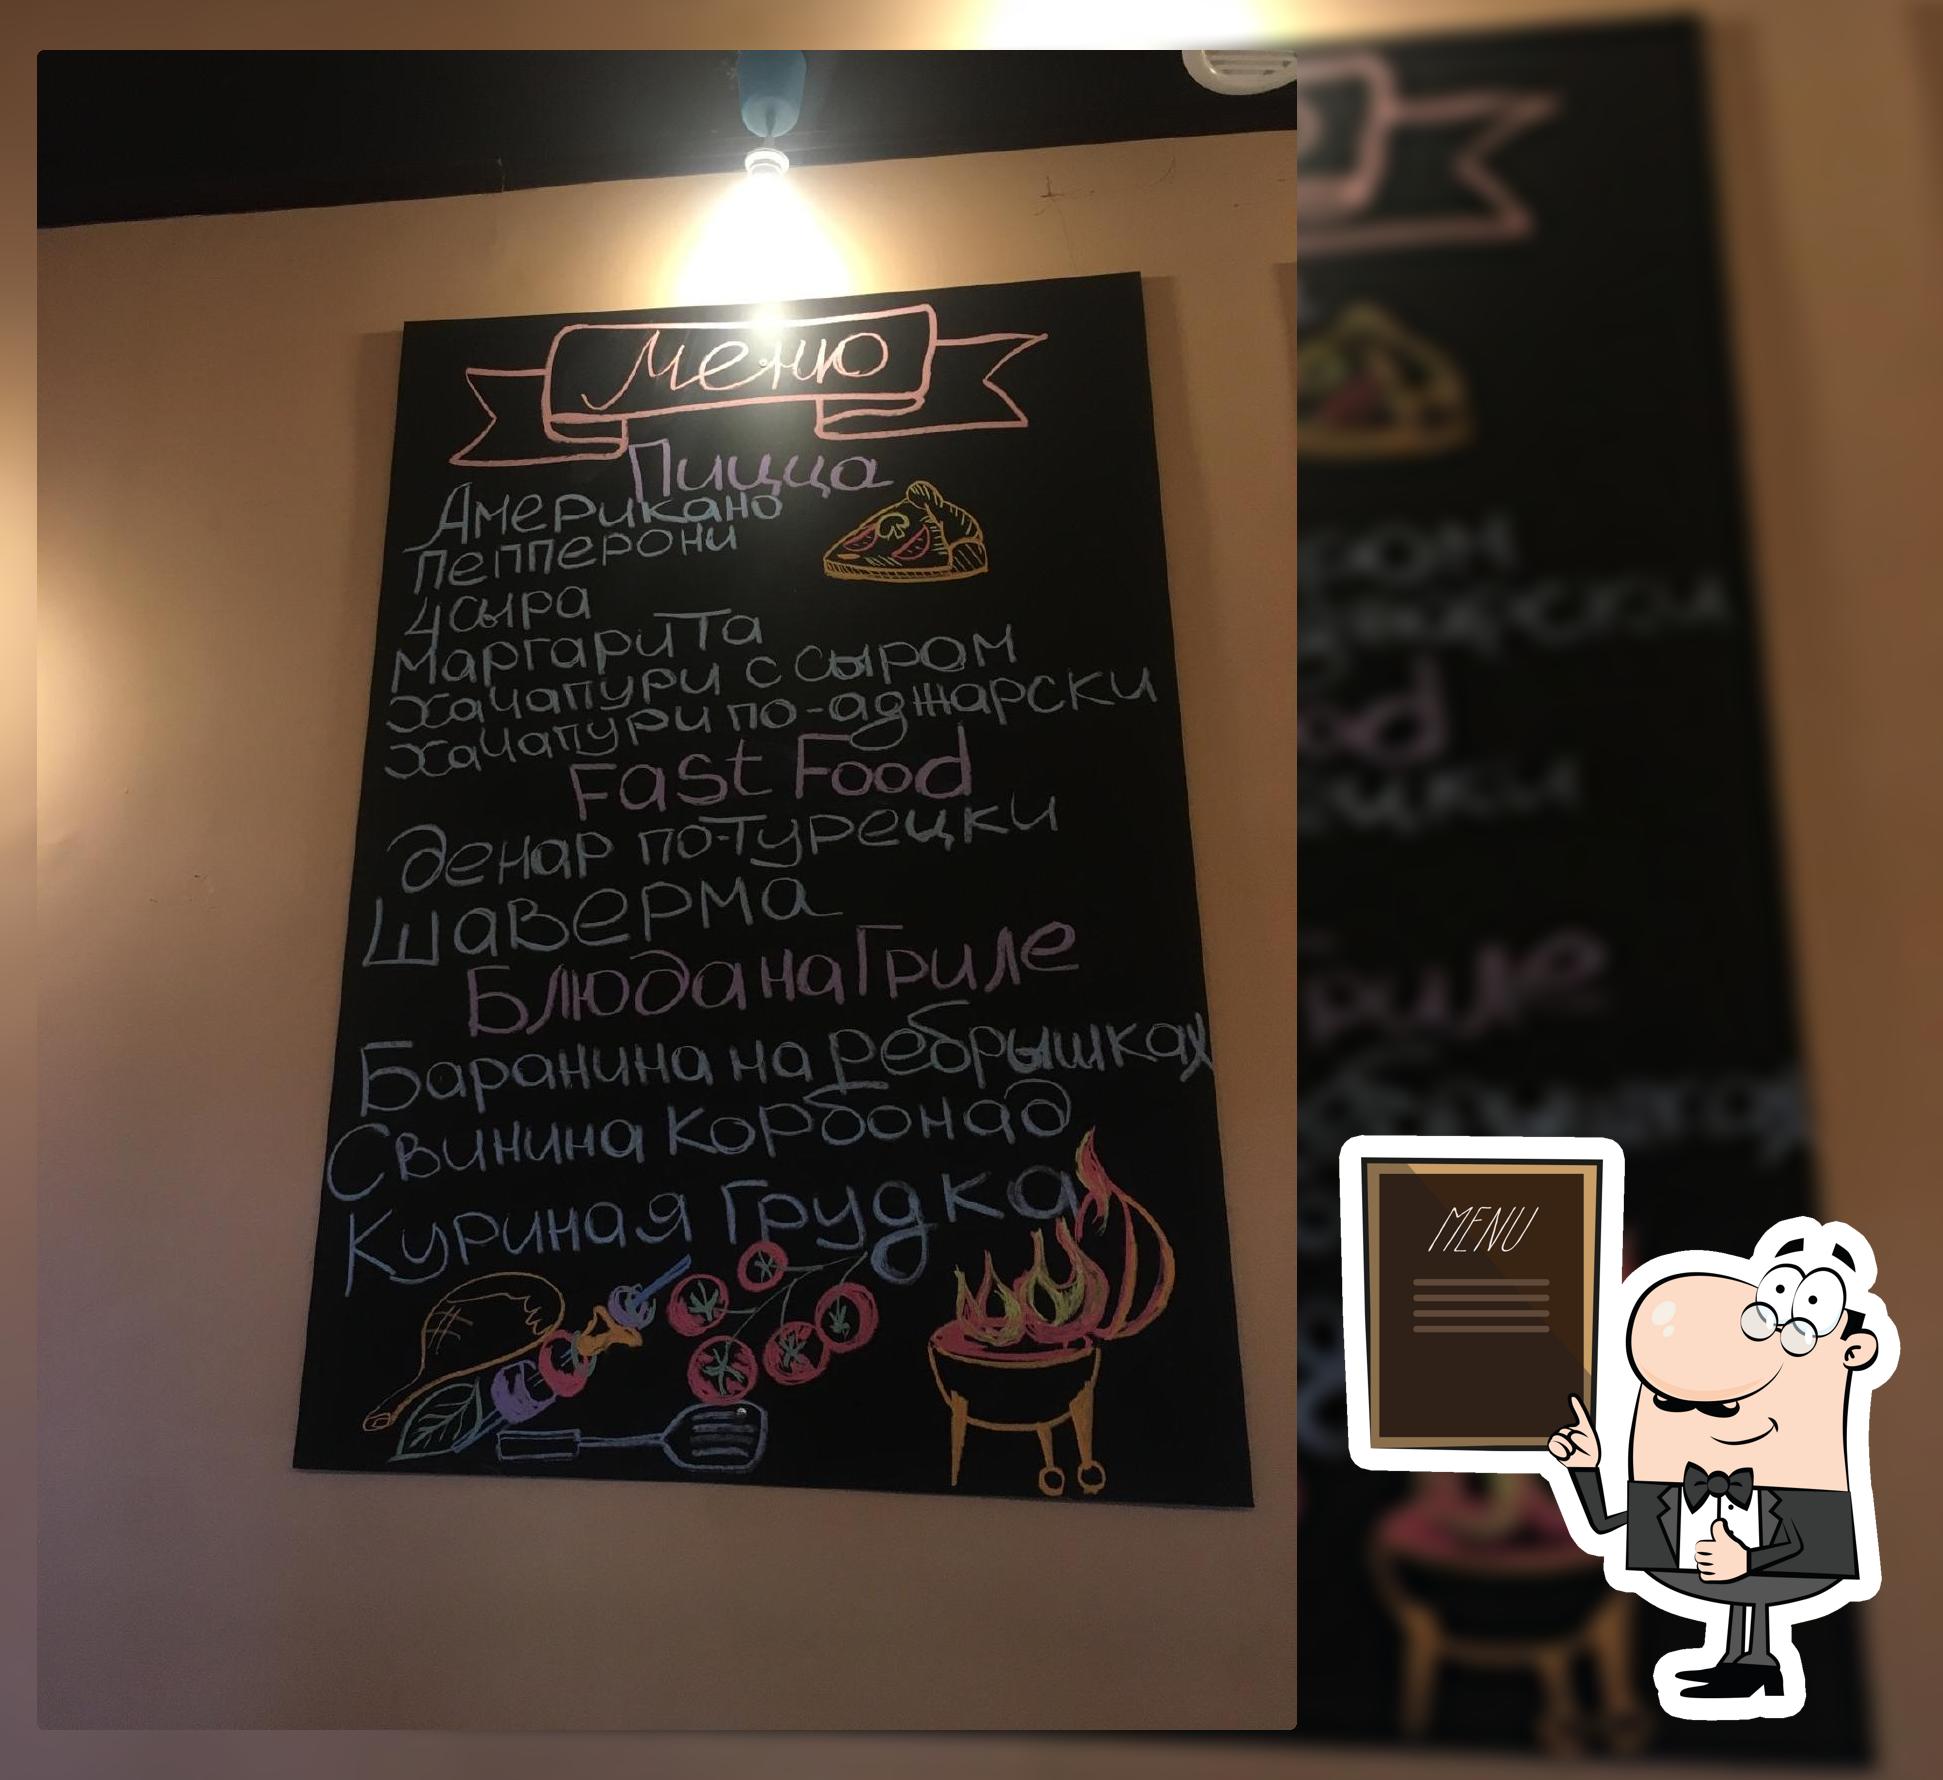 Меню
Пицца
Американо
Пепперони
4 сыра
Маргарита
Хачапури с сыром
Хачапури по-аджарски
Fast Food
Денар по-турецки
Шаверма
Блюда на Гриле
Баранина на ребрышках
Свинина Корбонад
Куриная Грудка
MENU